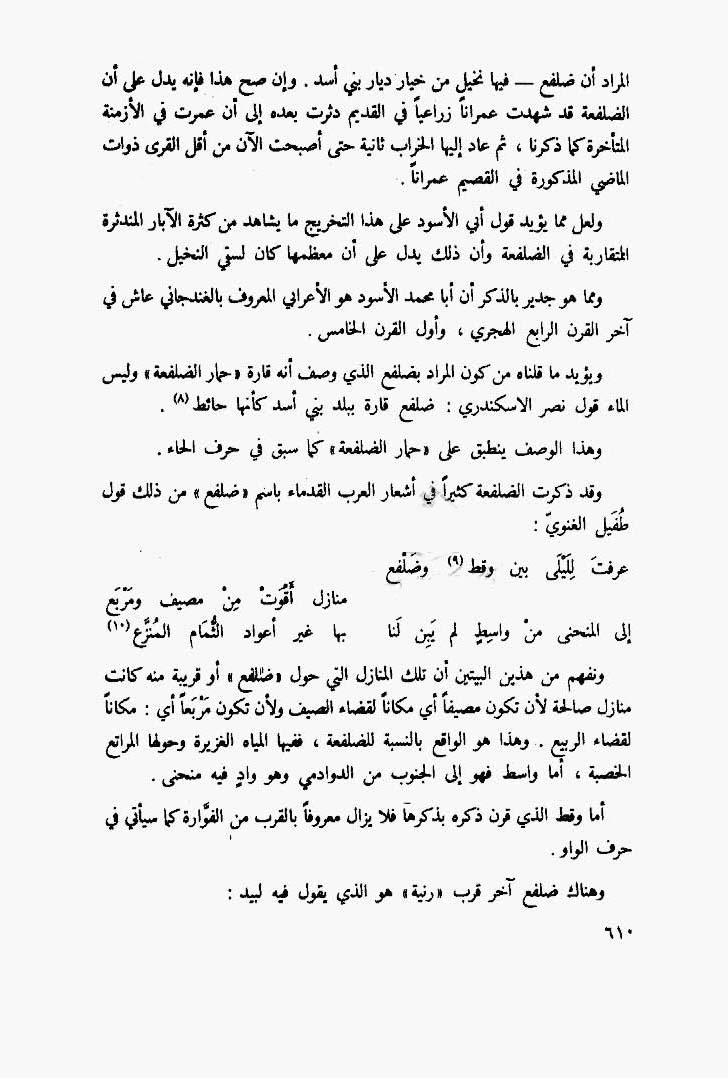 المراد أن ضلفع — فيها نخيل من خيار ديار بني أسد . وإن صح هذا فإنه يدل على أن
الضلفعة قد شهدت عمراناً زراعياً في القديم دثرت بعده إلى أن عمرت في الأزمنة
المتأخرة كما ذكرنا ، ثم عاد إليها الخراب ثانية حتى أصبحت الآن من أقل القرى ذوات
الماضي المذكورة في القصيم عمراناً .
ولعل مما يؤيد قول أبي الأسود على هذا التخريج ما يشاهد من كثرة الآبار المندثرة
المتقاربة في الضلفعة وأن ذلك يدل على أن معظمها كان لسقي النخيل .
ومما هو جدير بالذكر أن أبا محمد الأسود هو الأعرابي المعروف بالغندجاني عاش في
آخر القرن الرابع الهجري ، وأول القرن الخامس .
ويؤيد ما قلناه من كون المراد بضلفع الذي وصف أنه قارة «حمار الضلفعة» وليس
الماء قول نصر الاسكندري : ضلفع قارة ببلد بني أسد كأنها حائط (٨) .
وهذا الوصف ينطبق على «حمار الضلفعة» كما سبق في حرف الحاء .
وقد ذكرت الضلفعة كثيراً في أشعار العرب القدماء باسم «ضلفع» من ذلك قول
طُفَيل الغنويّ :
عرفتَ لِلَيْلَى بين وقط (٩) وضَلْفع
منازل أَقْوَتْ مِنْ مصيف ومَرْبَع
إلى المنحنى منْ واسِطٍ لم يَبِن لَنا بها غير أعواد الثُّمَام المُنَزَّع (١٠)
ونفهم من هذين البيتين أن تلك المنازل التي حول «ضلفع» أو قريبة منه كانت
منازل صالحة لأن تكون مصيفاً أي مكاناً لقضاء الصيف ولأن تكون مَرْبَعاً أي : مكاناً
لقضاء الربيع . وهذا هو الواقع بالنسبة للضلفعة ، ففيها المياه الغزيرة وحولها المراتع
الخصبة ، أما واسط فهو إلى الجنوب من الدوادمي وهو وادٍ فيه منحنى .
أما وقط الذي قرن ذكره بذكرها فلا يزال معروفاً بالقرب من الفوَّارة كما سيأتي في
حرف الواو .
وهناك ضلفع آخر قرب «رنية» هو الذي يقول فيه لبيد :
٦١٠